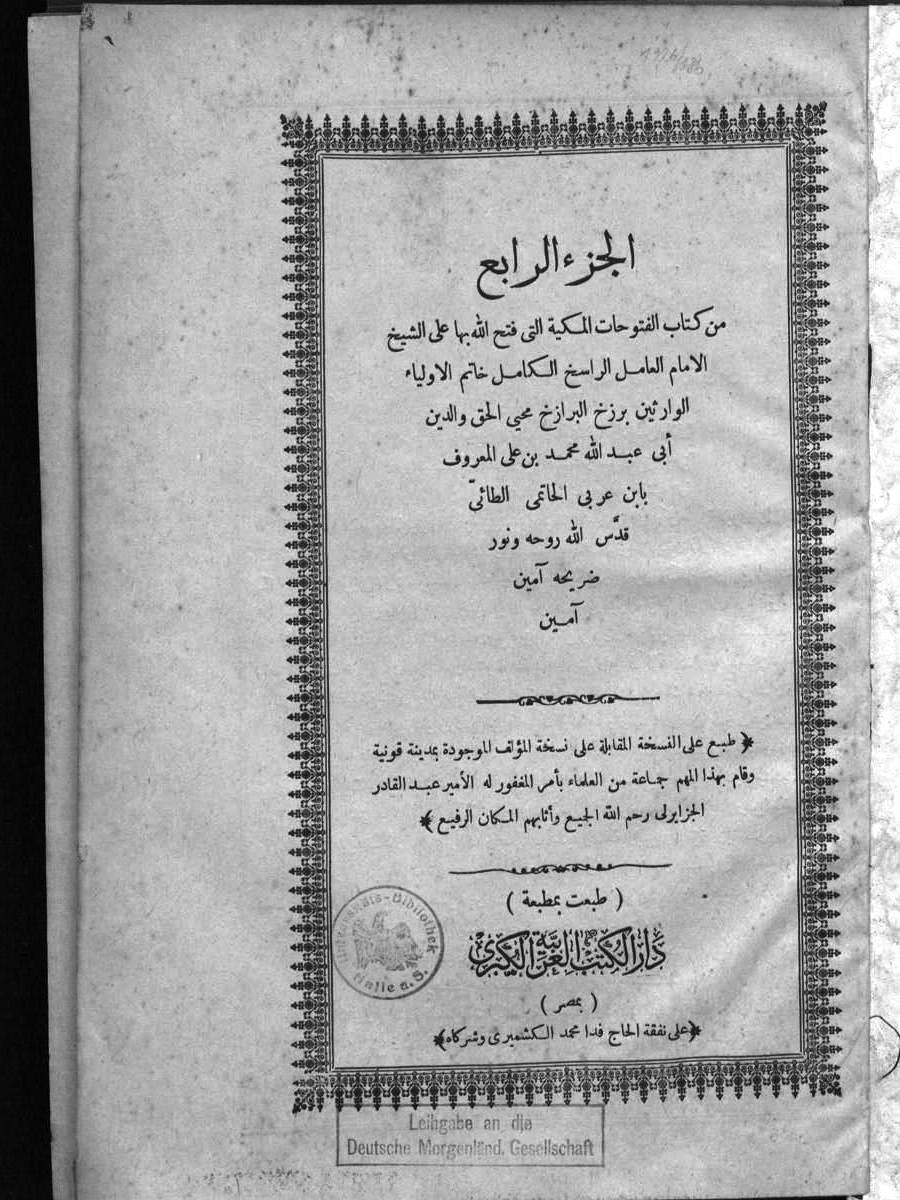 الجزء الرابع
من كتاب الفتوحات المكية التى فتح الله بها على الشيخ
الامام العامل الراسخ الكامل خاتم الاولياء
الوارثين برزخ البرازخ محيي الحق والدين
أبى عبد الله محمد بن على المعروف
بابن عربى الحاتمى الطائىّ
قدَّس الله روحه ونور
ضريحه آمين
آمين
﴿ طبع على النسخة المقابلة على نسخة المؤلف الموجودة بمدينة قونية
وقام بهذا المهم جماعة من العلماء بأمر المغفور له الأمير عبد القادر
الجزايرلى رحم الله الجميع وأثابهم المكان الرفيع ﴾
( طبعت بمطبعة )
دار الكتب العربية الكبرى
( بمصر )
﴿على نفقة الحاج فدا محمد الكشميرى وشركاه﴾
Universitäts-Bibliothek
Halle a. S.
Leihgabe an die
Deutsche Morgenländ. Gesellschaft